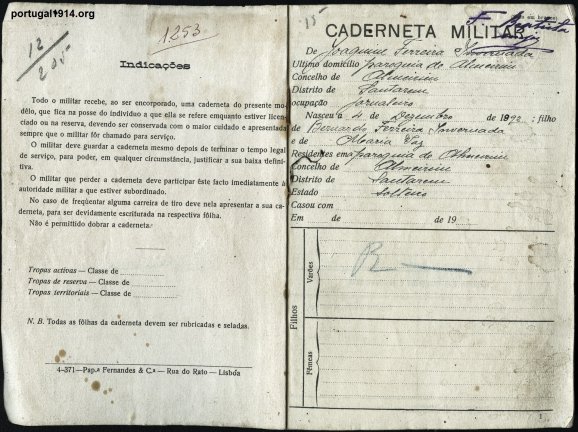 portugal1914.org
12
205
1253
Indicações
Todo o militar recebe, ao ser encorporado, uma caderneta do presente mo-
dêlo, que fica na posse do indivíduo a que ela se refere enquanto estiver licen-
ciado ou na reserva, devendo ser conservada com o maior cuidado e apresentada
sempre que o militar fôr chamado para serviço.
O militar deve guardar a caderneta mesmo depois de terminar o tempo legal
de serviço, para poder, em qualquer circunstância, justificar a sua baixa defini-
tiva.
O militar que perder a caderneta deve participar êste facto imediatamente à
autoridade militar a que estiver subordinado.
No caso de freqüentar alguma carreira de tiro deve nela apresentar a sua ca-
derneta, para ser devidamente escriturada na respectiva fôlha.
Não é permitido dobrar a caderneta.
Tropas activas — Classe de
Tropas de reserva — Classe de
Tropas territoriais — Classe de
N. B. Todas as fôlhas da caderneta devem ser rubricadas e seladas.
4-371—Pap.ª Fernandes & C.ª — Rua do Rato — Lisbôa
15
F. Baptista
CADERNETA MILITAR
De Joaquim Ferreira
Ultimo domicílio paroquia de Almeirim
Concelho de Almeirim
Distrito de Santarem
ocupação Jornaleiro
Nasceu a 4 de Dezembro de 1892; filho
de Bernardo Ferreira
e de Maria Vaz
Residentes em a paroquia de Almeirim
Concelho de Almeirim
Distrito de Santarem
Estado Solteiro
Casou com
Em de de 19
Filhos
Varões
Fêmeas
1